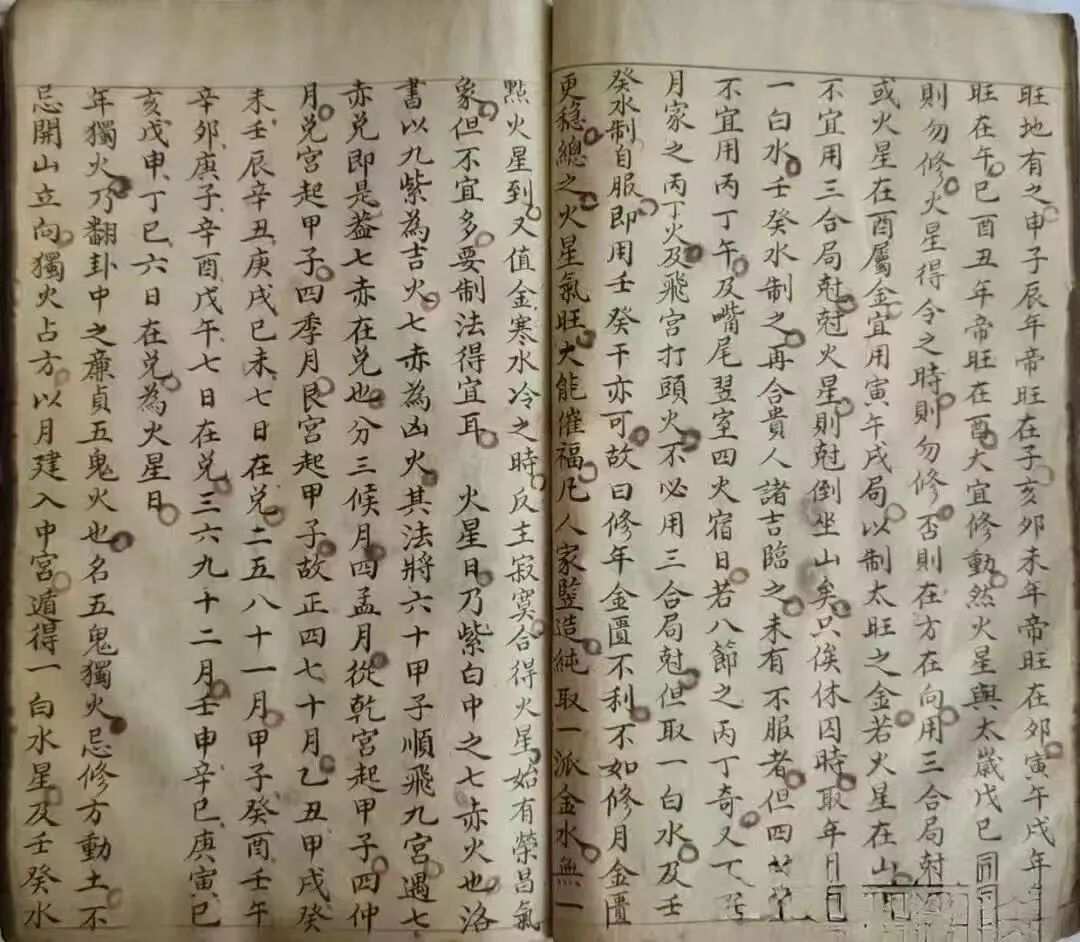 旺地有之申子辰年帝旺在子亥夘未年帝旺在夘寅午戌年
旺在午巳酉丑年帝旺在酉大宜修動然火星與太歲戊己同
則勿修火星得令之時則勿修否則在方在向用三合局尅
或火星在酉屬金宜用寅午戌局以制太旺之金若火星在山
不宜用三合局尅尅火星則尅倒坐山矣只俟休囚時取年月
一白水壬癸水制之再合貴人諸吉臨之未有不服者但四
不宜用丙丁午及嘴尾翌室四火宿日若八節之丙丁奇又
月家之丙丁火及飛宮打頭火不必用三合局尅但取一白水及壬
癸水制自服即用壬癸干亦可故曰修年金匱不利不如修月金匱
更穏總之火星氣旺大能催福凡人家竪造純取一派金水無一
點火星到又值金寒水冷之時反主寂寞合得火星始有榮昌氣
象但不宜多要制法得宜耳 火星日乃紫白中之七赤火也洛
書以九紫為吉火七赤為凶火其法將六十甲子順飛九宮遇七
赤兑即是葢七赤在兑也分三候月四孟月從乾宮起甲子四仲
月兑宮起甲子四季月艮宮起甲子故正四七十月乙丑甲戌癸
未壬辰辛丑庚戌巳未七日在兑二五八十一月甲子癸酉壬午
辛夘庚子辛酉戊午七日在兑三六九十二月壬申辛巳庚寅巳
亥戊申丁巳六日在兑為火星日
年獨火乃翻卦中之廉貞五鬼火也名五鬼獨火忌修方動土不
忌開山立向獨火占方以月建入中宮遁得一白水星及壬癸水